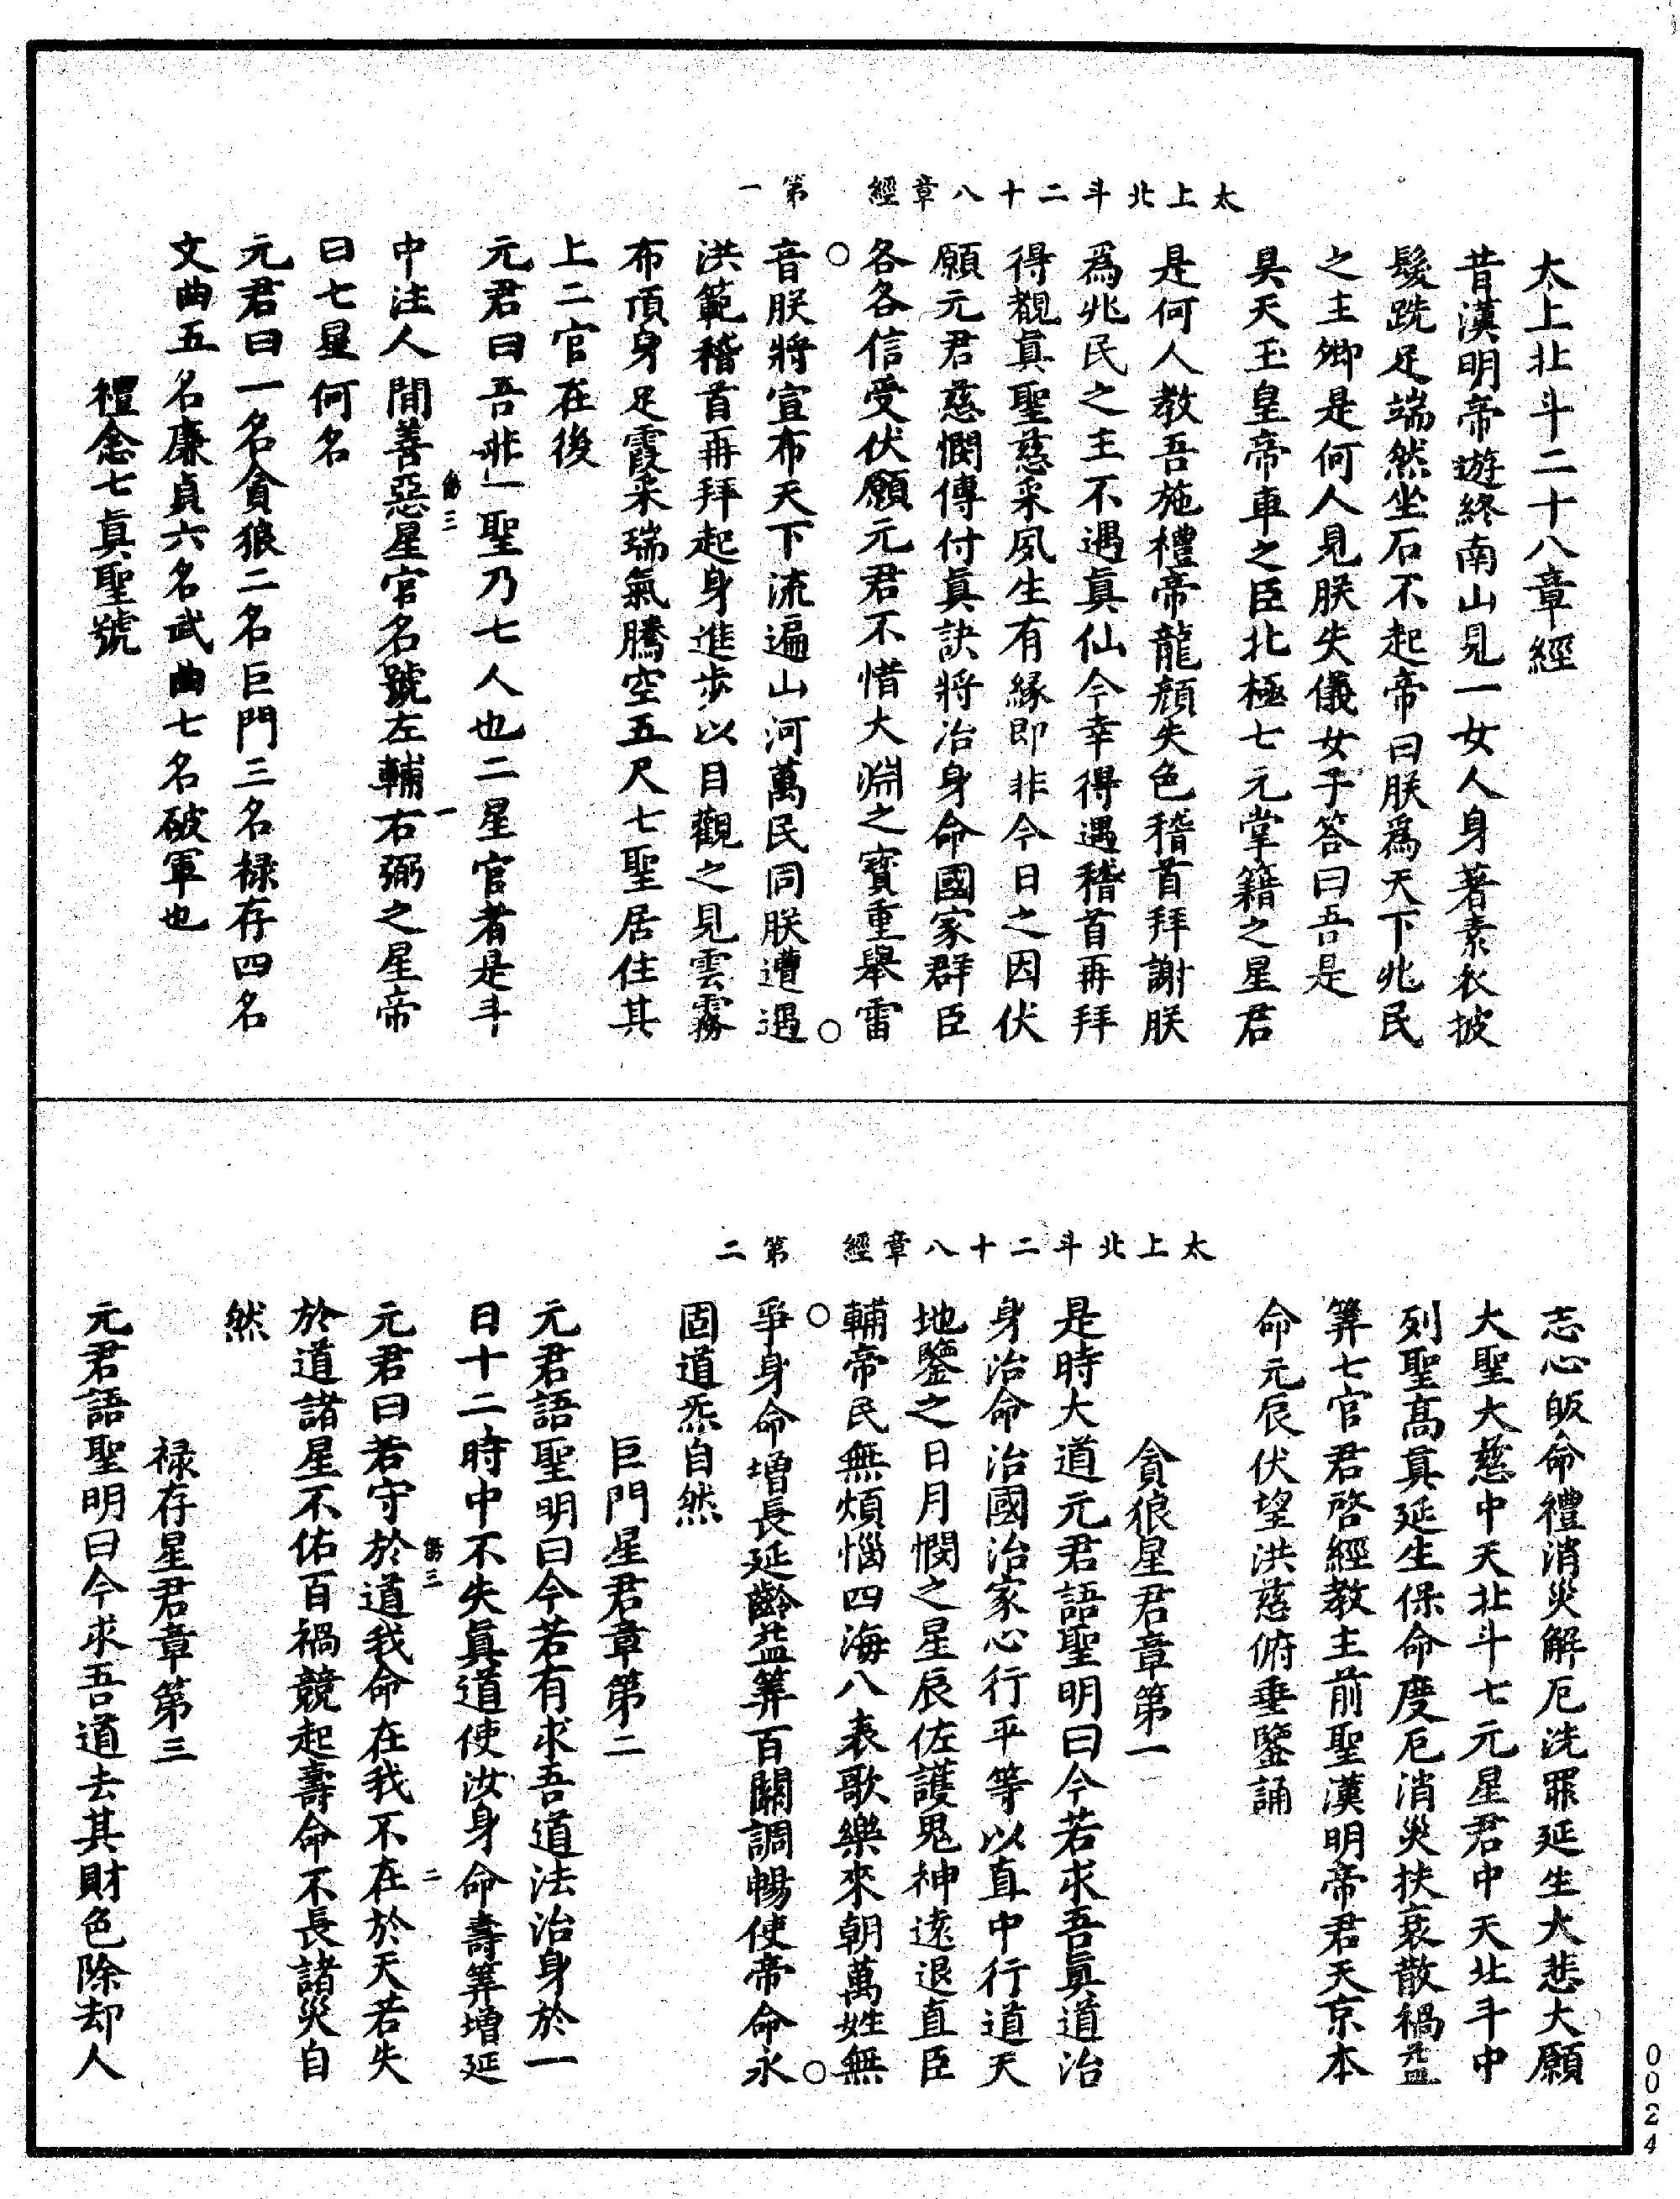 太上北斗二十八章經
昔漢明帝遊終南山見一女人身著素衣披
髮跣足端然坐石不起帝曰朕爲天下兆民
之主卿是何人見朕失儀女子答曰吾是
具天玉皇帝車之臣北極七元掌籍之星君
是何人教吾施禮帝龍顔失色稽首拜謝朕
爲兆民之主不遇眞仙今幸得遇稽首再拜
得覩眞聖慈采夙生有緣即非今日之因伏
願元君慈憫傳付眞訣將治身命國家群臣
各各信受伏願元君不惜大淵之寶重舉雷
太上北斗二十八章經　第一
音朕將宣布天下流遍山河萬民同朕遭遇
洪範稽首再拜起身進步以目觀之見雲霧
布頂身足霞采瑞氣騰空五尺七聖居住其
上二官在後
元君曰吾非一聖乃七人也二星官者是斗
中注人間善惡星官名號左輔右弼之星帝
曰七星何名
元君曰一名貪狼二名巨門三名祿存四名
文曲五名廉貞六名武曲七名破軍也
禮念七眞聖號
志心皈命禮消災解厄洗罪延生大悲大願
大聖大慈中天北斗七元星君中天北斗中
列聖高眞延生保命度厄消災扶衰散禍益
筭七官君啓經教主前聖漢明帝君天京本
命元辰伏望洪慈俯垂鑒誦
貪狼星君章第一
是時大道元君語聖明曰今若求吾眞道治
身治命治國治家心行平等以直中行道天
地鑒之日月憫之星辰佐護鬼神遠退直臣
輔帝民無煩惱四海八表歌樂來朝萬姓無
太上北斗二十八章經　第二
爭身命增長延齡益筭百關調暢使帝命永
固道炁自然
巨門星君章第二
元君語聖明曰今若有求吾道法治身於一
日十二時中不失眞道使汝身命壽筭增延
元君曰若守於道我命在我不在於天若失
於道諸星不佑百禍競起壽命不長諸災自
然
祿存星君章第三
元君語聖明曰今求吾道去其財色除却人
0024